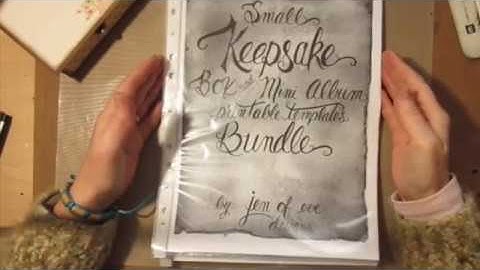 Small
Keepsake
Box and Mini Album
printable templates
Bundle
by jen of eve
designs